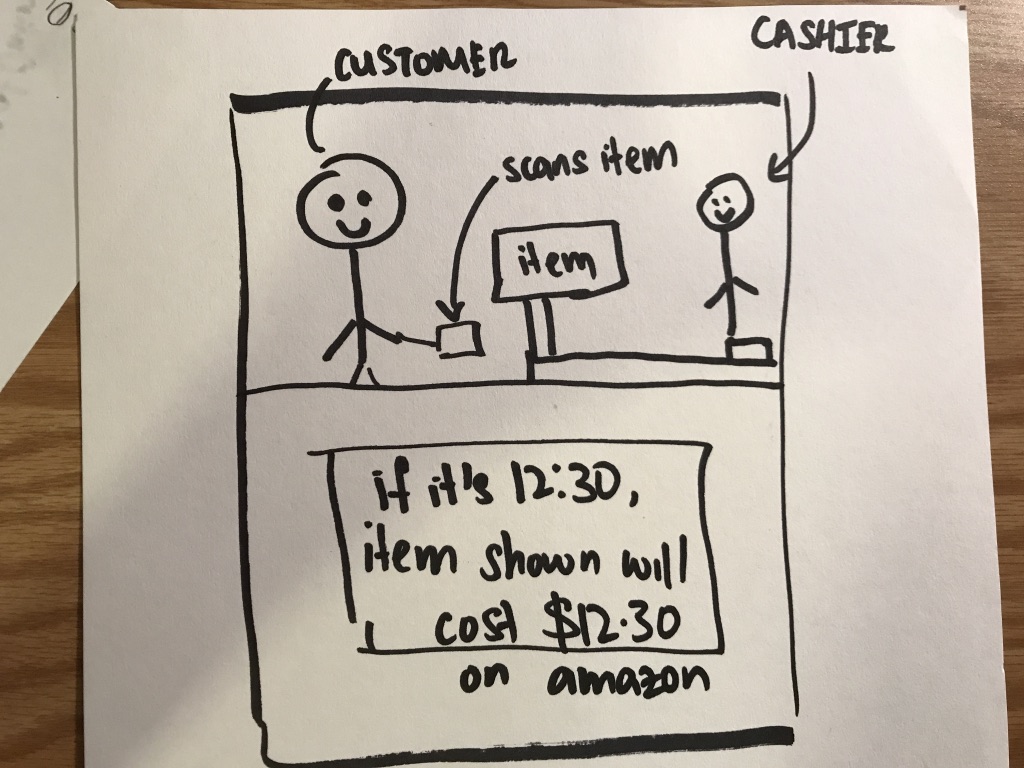 CUSTOMER
CASHIER
scans item
item
if it's 12:30,
item shown will
cost $12.30
on amazon